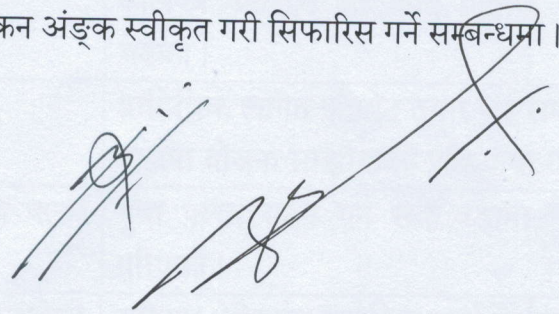 कन अंङ्क स्वीकृत गरी सिफारिस गर्ने सम्बन्धमा ।